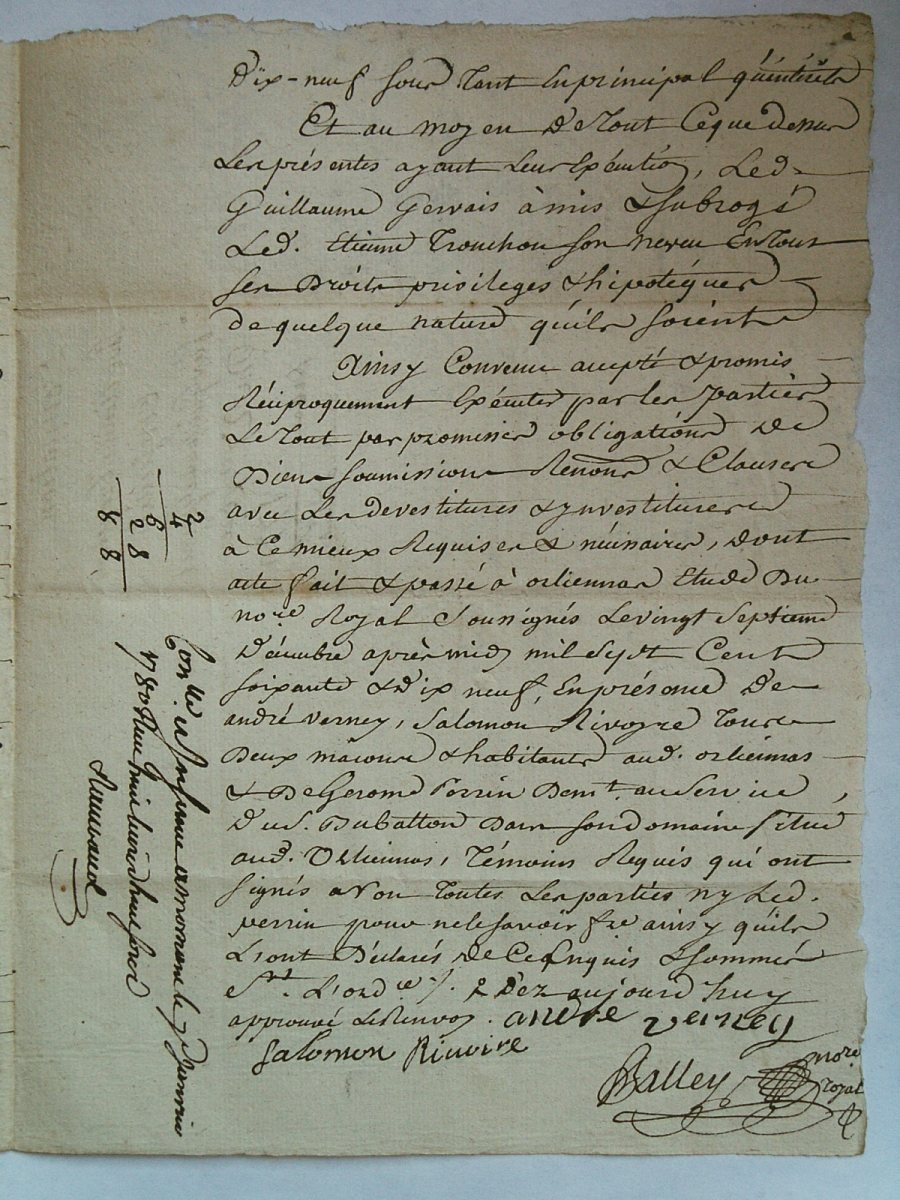 Dix-neuf sour tant en principal qu'intérêts
Et au moyen de tout ce que dessus
Les présentes ayant leur exécution, Led.
Guillaume Gervais à mis & subrogé
Led. Etienne Trouchon son neveu en tout
ses droits privileges & hipotéques
de quelque nature qu'ils soient
Ainsy convenu accepté & promis
Réciproquement exécuter par les parties
Le tout par promisses obligations de
Biens soumissions Renons & Clauses
avec Les devestitures & ynvestitures
à ce mieux Requises & nécinaires, dont
acte fait & passé à orliennas Etude Du
nore Royal Soussignés Le vingt Septieme
Décembre après midy mil Sept Cent
soixante & dix neuf, En présence De
andré verney, Salomon Rivoyre Tous
Deux maçons & habitants aud. orlienas
& De Gerome Perrin Demt. au Service
Du S. Dubatton Dans son domaine situé
aud. Orlienas, Témoins Requis qui ont
signés a non toutes Les parties ny Led.
perrin pour ne le savoir fre ainsy qu'ils
L'ont Déclarés de ce enquis & sommés
st. L'ord ce /. & Dez aujourd'huy
approuvé Le Renvoy. andre verney
Salomon Riuoire
Balley nore
royal
2
4
6
28
88
Con lle & a mornant le 7 Janvier
1780